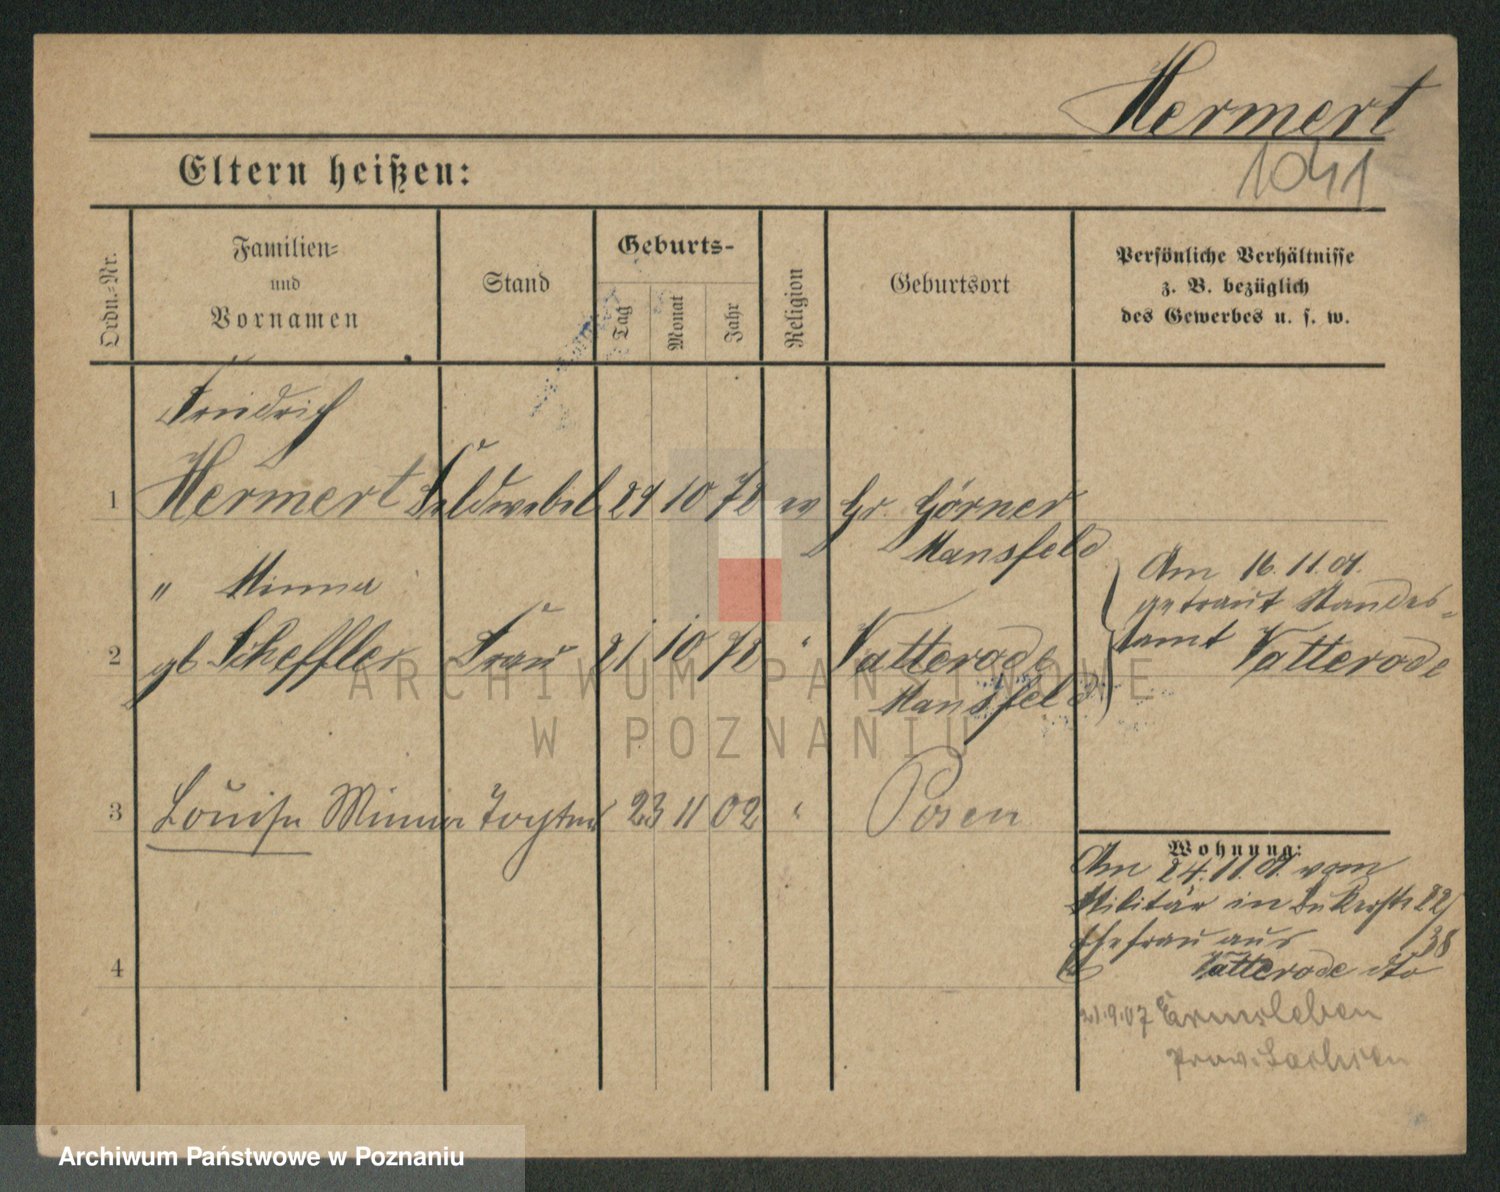 Hermert
1041
Eltern heißen:
Ordn.=Nr.
Familien=
und
Vornamen
Stand
Geburts-
Tag
Monat
Jahr
Religion
Geburtsort
Persönliche Verhältnisse
z. B. bezüglich
des Gewerbes u. s. w.
Friedrich
1 Hermert Feldwebel 29 10 72 ev Gr. Görner
Mansfeld
" Minna
2 gb Scheffler Frau 21 10 72 " Vatterode
Mansfeld
Am 16.11.01.
getraut Standes-
amt Vatterode
3 Louise Minna Tochter 23 11 02 " Posen
4
Wohnung:
Am 24.11.01. vom
Militär in 22/
Ehefrau aus 38
Vatterode dto
21.9.07 Ermsleben
Prov. Sachsen
ARCHIWUM PAŃSTWOWE
W POZNANIU
Archiwum Państwowe w Poznaniu